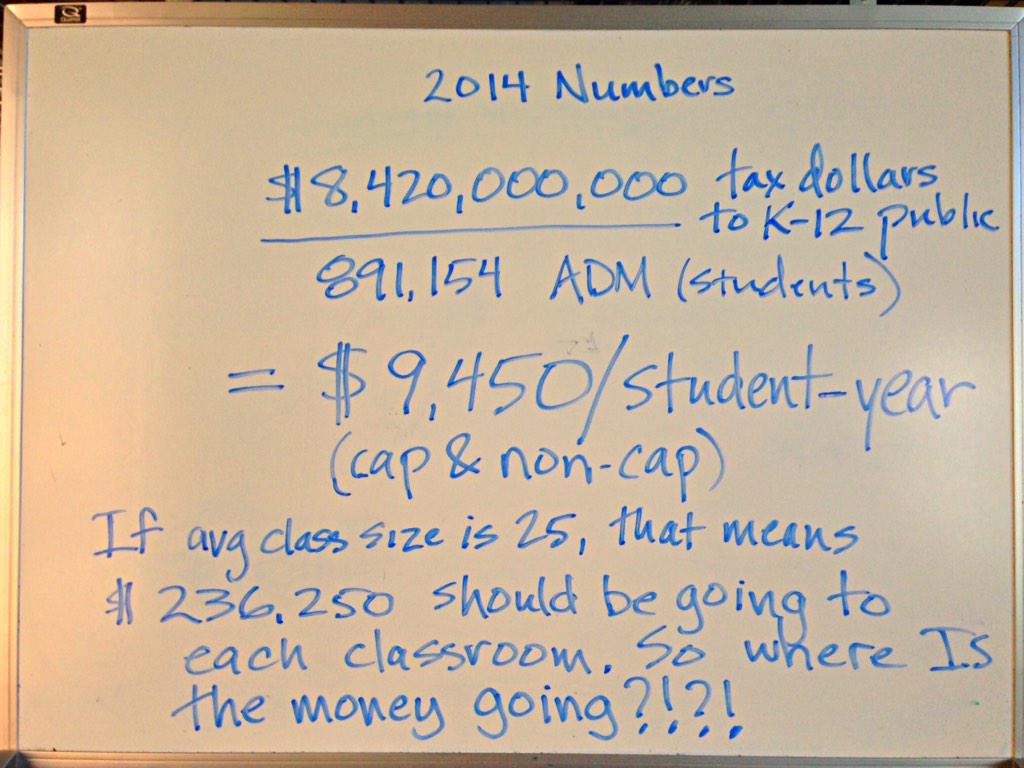 2014 Numbers
$8,420,000,000 tax dollars
to K-12 public
891,154 ADM (students)
= $9,450/student-year
(cap & non-cap)
If avg class size is 25, that means
$236,250 should be going to
each classroom. So where Is
the money going?!?!